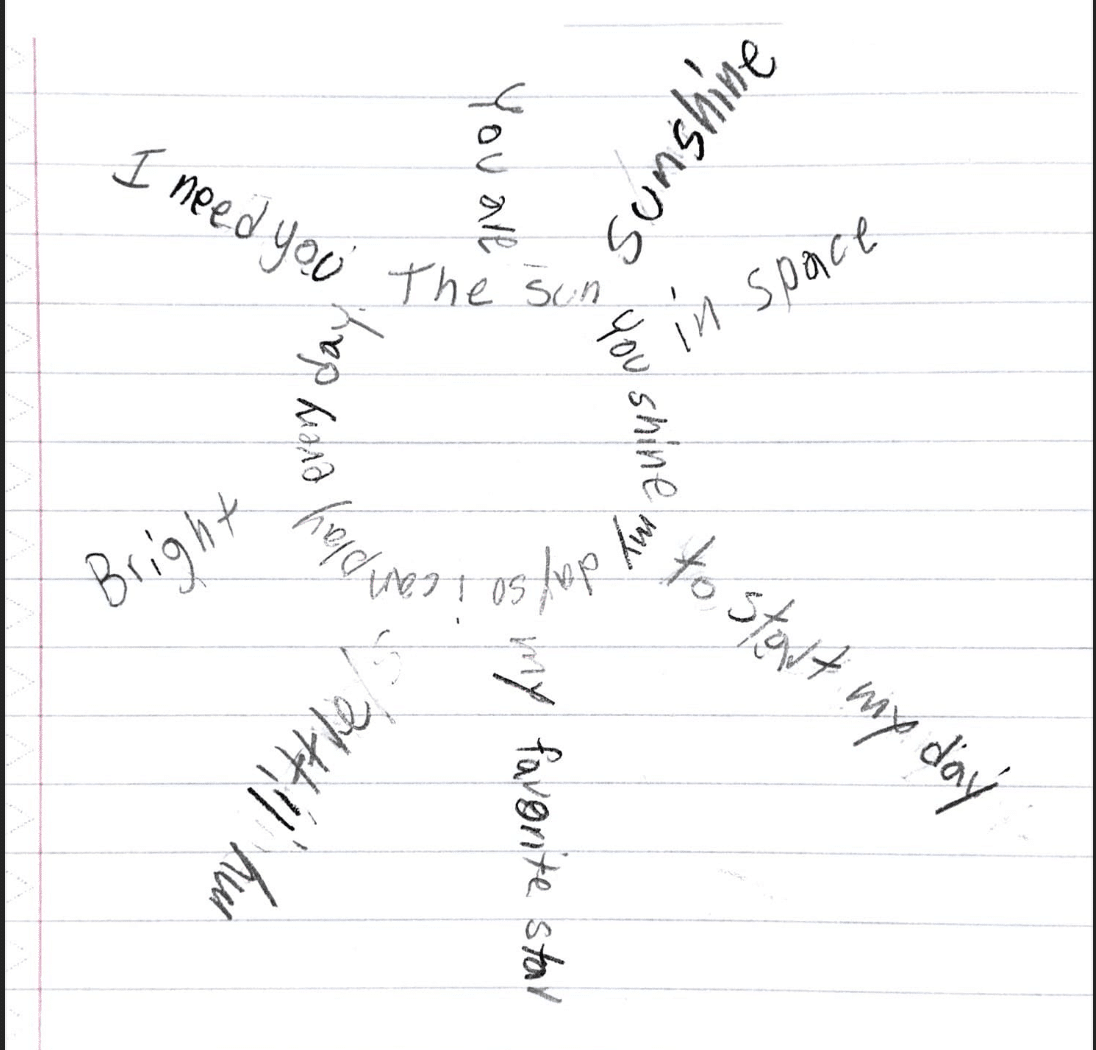 The sun
you shine
my
day so i can
play
every day
you are
Sunshine
in space
to start my day
my favorite star
my little
Bright
I need you